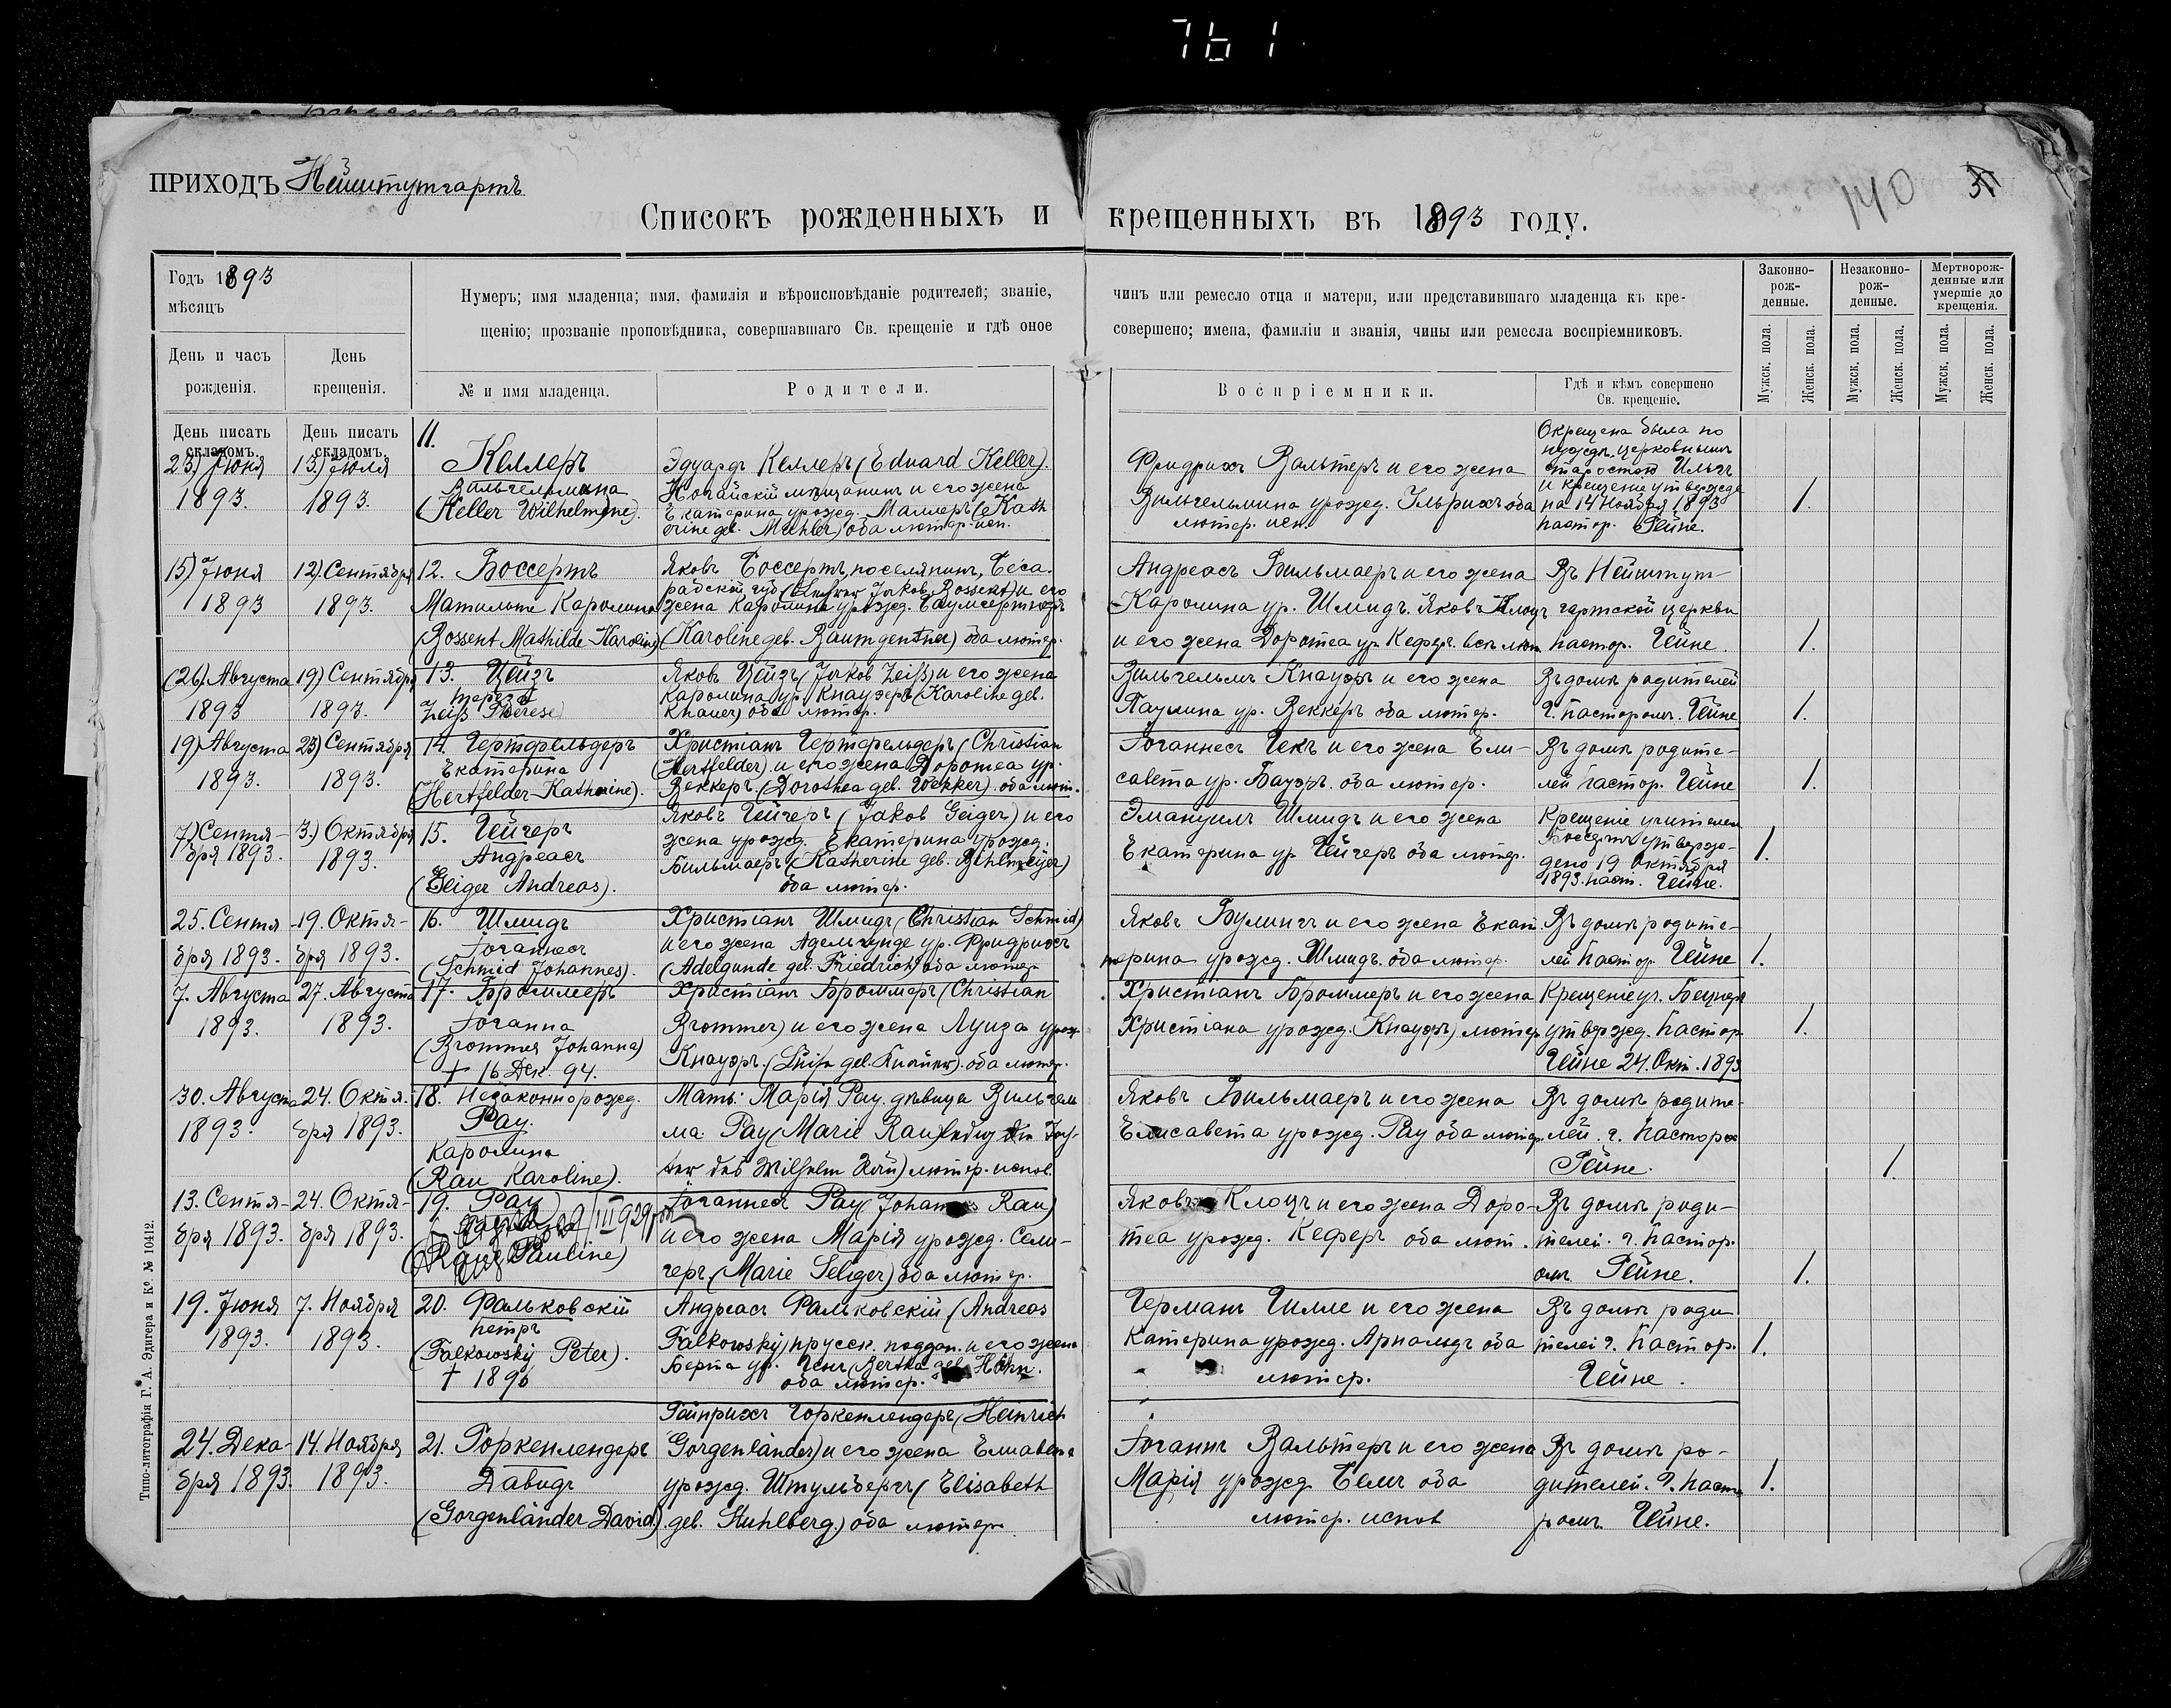 761
ПРИХОДЪ Нейштутгартъ
140
Списокъ рожденныхъ и крещенныхъ въ 1893 году.
Годъ 1893
мѣсяцъ
День и часъ рожденія.
День крещенія.
Нумеръ; имя младенца; имя, фамилія и вѣроисповѣданіе родителей; званіе, чинъ или ремесло отца и матери, или представившаго младенца къ кре-
щенію; прозваніе проповѣдника, совершавшаго Св. крещеніе и гдѣ оное совершено; имена, фамиліи и званія, чины или ремесла воспріемниковъ.
№ и имя младенца.
Родители.
Воспріемники.
Гдѣ и кѣмъ совершено Св. крещеніе.
Законно-рож-денные.
Незаконно-рож-денные.
Мертворож-денные или умершіе до крещенія.
Мужск. пола.
Женск. пола.
Мужск. пола.
Женск. пола.
Мужск. пола.
Женск. пола.
День писать складомъ.
День писать складомъ.
23) Июня
1893.
13) Июля
1893.
11.
Келлеръ
Вильгельмина
(Keller Wilhelmine).
Эдуардъ Келлеръ (Eduard Keller).
Ногайскій мѣщанинъ и его жена
Екатерина урожд. Маллеръ (Kath
erine geb. Mahler) оба лютер. исп.
Фридрихъ Вальтеръ и его жена
Вильгельмина урожд. Ульрихъ оба
лютер. исп.
Окрещена была по
нуждѣ церковнымъ
старостою
и крещеніе утвержде
на 14 Ноября 1893
пастор. Гейне.
1.
15) Июня
1893
12) Сентября
1893.
12. Боссертъ
Матильте Каролина
(Bossert Mathilde Karoline)
Яковъ Боссертъ, поселянинъ, Беса-
рабской губ. (Jakob Bossert) и его
жена Каролина урожд. Баумгертнеръ
(Karoline geb. Baumgentner) оба лютер.
Андреасъ Бильмаеръ и его жена
Каролина ур. Шмидъ. Яковъ Клоцъ
и его жена Доротеа ур. Кеферъ. всѣ лют
Въ Нейштут-
гартской церкви
пастор. Гейне.
1.
(26) Августа
1893
19) Сентября
1893.
13. Цейзъ
Тереза
Zeiß Therese)
Яковъ Цейзъ (Jakob Zeiß) и его жена
Каролина ур. Кнауеръ (Karoline geb.
Knauer) оба лютер.
Вильгельмъ Кнауеръ и его жена
Паулина ур. Веккеръ оба лютер.
Въ домѣ родителей
г. пасторомъ. Гейне
1.
19) Августа
1893.
23) Сентября
1893.
14. Гертфельдеръ
Екатерина
(Hertfelder Katharine).
Христіанъ Гертфельдеръ (Christian
Hertfelder) и его жена Доротеа ур.
Веккеръ (Dorothea geb. Wekker) оба лют.
Іоганнесъ Гекъ и его жена Ели-
савета ур. Бауеръ. оба лютер.
Въ домѣ родите-
лей пастор. Гейне
1.
7) Сентя-
бря 1893.
3.) Октября
1893.
15. Гейгеръ
Андреасъ
(Geiger Andreas).
Яковъ Гейгеръ (Jakob Geiger) и его
жена урожд. Екатерина урожд.
Бильмаеръ (Katherine geb. Bihlmeyer)
оба лютер.
Эмануилъ Шмидъ и его жена
Екатерина ур Гейгеръ оба лютер.
Крещеніе учителемъ
утверж-
дено 19 Октября
1893. паст. Гейне.
1.
25. Сентя-
бря 1893.
19. Октя-
бря 1893.
16. Шмидъ
Іоганнесъ
(Schmid Johannes).
Христіанъ Шмидъ (Christian Schmid)
и его жена Адельгунде ур. Фридрихъ
(Adelgunde geb. Friedrich) оба лютер
Яковъ Булингъ и его жена Екат
ерина урожд. Шмидъ. оба лютер.
Въ домѣ родите-
лей пастор. Гейне
1.
7. Августа
1893.
27. Августа
1893.
17. Броммеръ
Іоганна
(Brommer Johanna)
† 16 Дек. 94.
Христіанъ Броммеръ (Christian
Brommer) и его жена Луиза урож
Кнауеръ. (Luise geb. Knauer). оба лютер.
Христіанъ Броммеръ и его жена
Христіана урожд. (Кнауеръ) лютер
Крещеніе уч.
утвержд. пастор
Гейне 24. Окт. 1893
1.
30. Августа
1893.
24. Октя-
бря 1893.
18. Незаконнорожд.
Рау.
Каролина
(Rau Karoline).
Мать: Марія Рау. дѣвица Вильгель
ма Рау (Marie Rau) ledig die Toch-
ter des Wilhelm Rau) лютер. испов.
Яковъ Бильмаеръ и его жена
Елисавета урожд. Рау оба лютер.
Въ домѣ родите-
лей. г. пасторо
Гейне.
1.
13. Сентя-
бря 1893.
24. Октя-
бря 1893.
19. Рау
(Rau Pauline)
Іоганнесъ Рау (Johannes Rau)
и его жена Марія урожд. Сели-
геръ (Marie Seliger) оба лютер.
Яковъ Клоцъ и его жена Доро-
теа урожд. Кеферъ оба лют.
Въ домѣ роди-
телей. г. пастор.
омъ Гейне.
1.
19. Июня
1893.
7. Ноября
1893.
20. Фальковскій
Петръ
(Falkowskij Peter).
† 1896
Андреасъ Фальковскій (Andreas
Falkowskij) прусск. поддан. и его жена
Берта ур. Генъ (Bertha geb. Höhn.
оба лютер.
Германъ Гилле и его жена
Катерина урожд. Арнольдъ оба
лютер.
Въ домѣ роди
телей г. Пастор.
Гейне.
1.
24. Дека-
бря 1893.
14. Ноября
1893.
21. Горкенлендеръ
Давидъ
(Gorgenländer David.)
Гейнрихъ Горкенлендеръ (Heinrich
Gorgenländer) и его жена Елисавета
урожд. Штульбергъ (Elisabeth
geb. Stuhlberg.) оба лютер.
Іоганнъ Вальтеръ и его жена
Марія урожд. оба
лютер. испов
Въ домѣ ро-
дителей. г. пасто
ромъ. Гейне.
1.
Типо-литографія Г. А. Эдигера и Кº. № 10412.